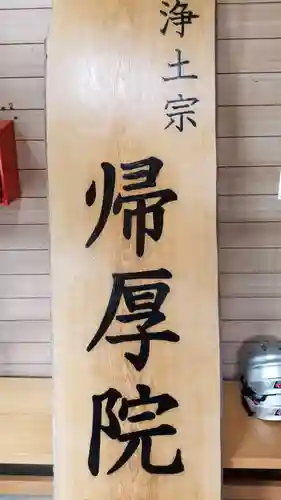 浄土宗
帰厚院